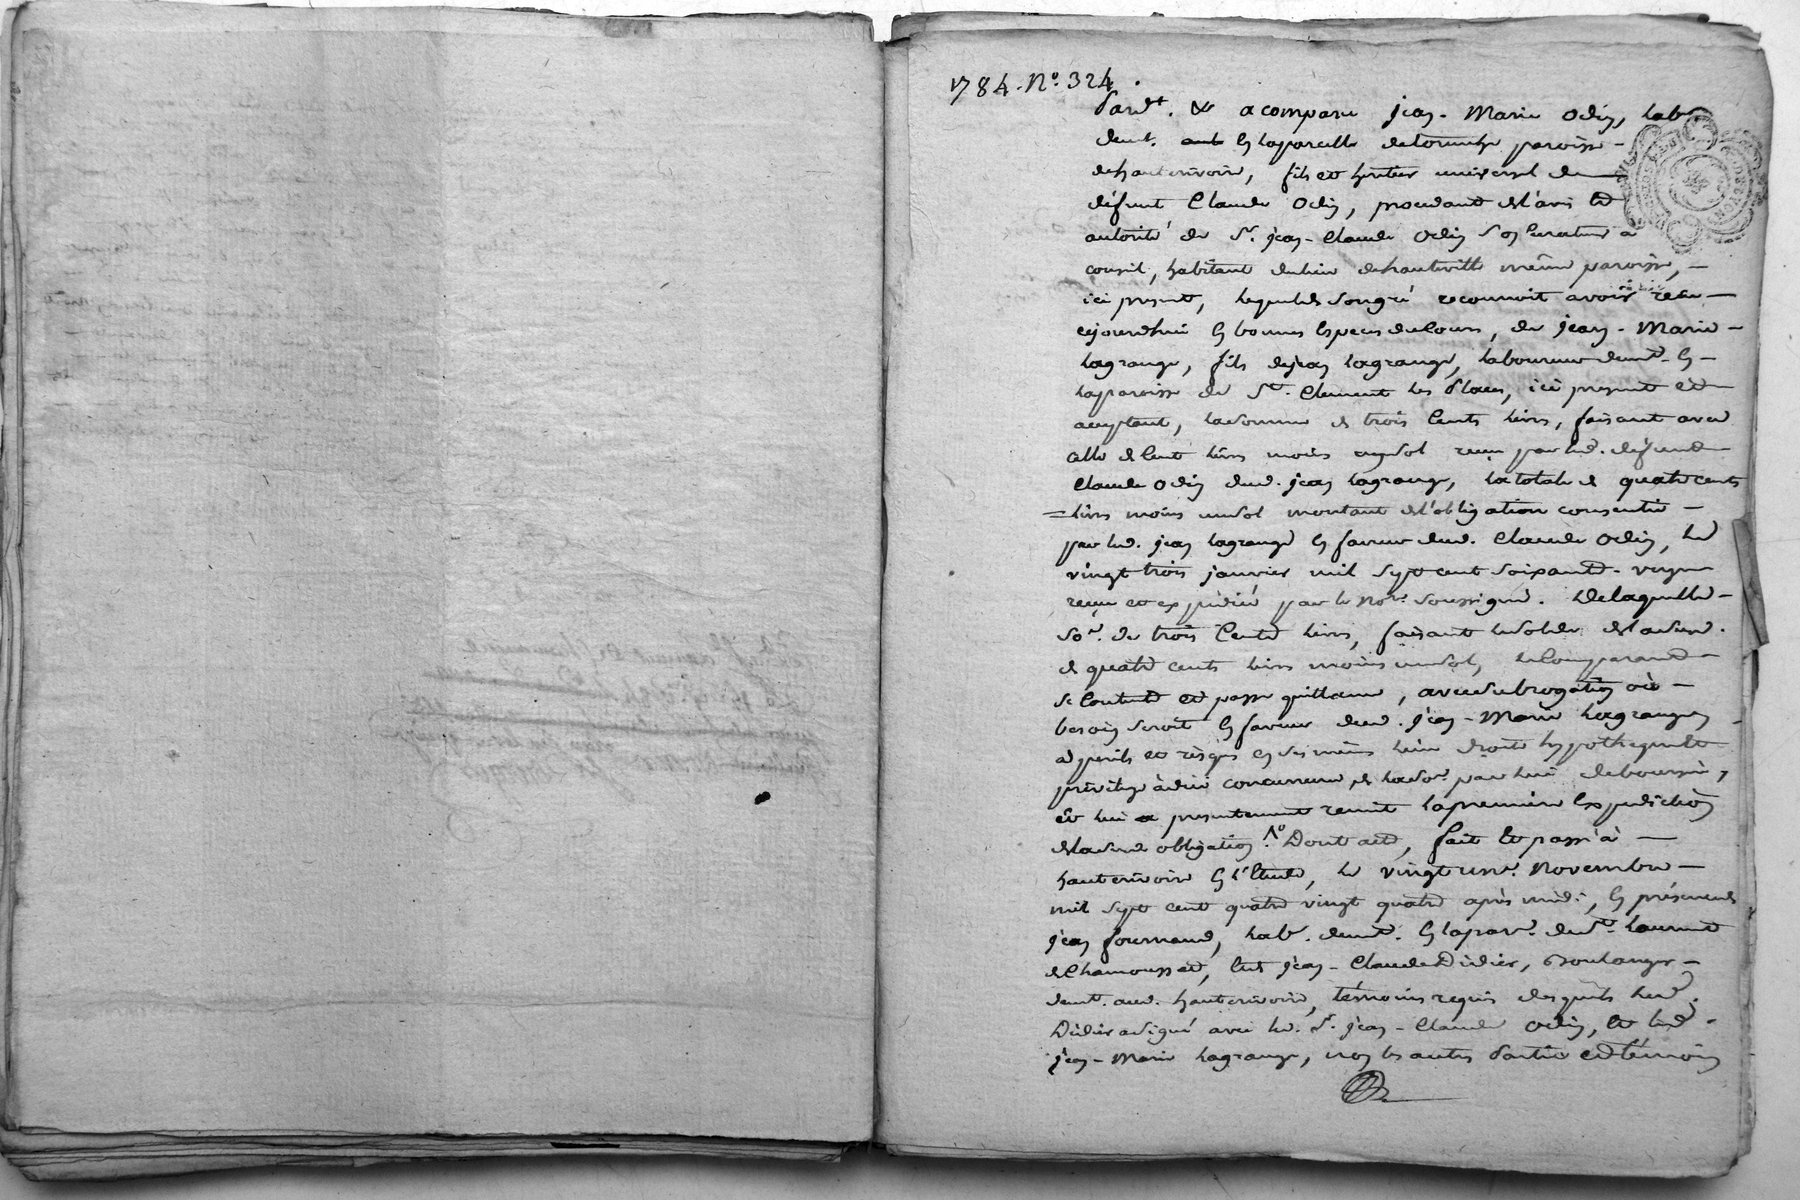 1784. N°. 324.
Pard.t & a comparu jean-Marie odin, lab.r
dem.t en laparcelle paroisse
dehauterivoire, fils et heritier universel de
défunt Claude odin, procedant del'avis et
autorité de S.r jean-Claude odin son Curateur a
conseil, habitant dulieu dehauteville même paroisse,
ici present, lequel de songré reconnoit avoir recu
cejourdhui en bonnes Especes deCours, de jean-Marie
lagrange, fils dejean lagrange, laboureur dem.t en
laparoisse de S.t Clement les places, ici present et
acceptant, lasomme de trois Cents livres, faisant avec
celle de Cent livres moins unsol recu par led. défunt
Claude odin dud. jean lagrange, latotale de quatrecents
livres moins unsol montant del'obligation consentie
par led. jean lagrange en faveur dud. Claude odin, le
vingt trois janvier mil sept cent soixante
recue et expediée par le No.re soussigné. Delaquelle
so.e de trois Cents livres, faisant lesolde deladite
de quatre cents livres moins unsol, leComparant
se Contente et passe quittance, avecsubrogation où
besoin seroit en faveur dud. jean-Marie lagrange
a perils et risques en ses mêmes lieu droits hypotheque et
privilege à due concurrence de laso.e par lui deboursée,
et lui a presentement remit lapremiere Expedition
deladite obligation. Dont acte, fait et passé à
hauterivoire en l'Etude, le vingt un.e Novembre
mil sept cent quatre vingt quatre après midi, en présence de
jean fournand, lab.r dem.t en lapar.se de S.t laurent
deChamousset, et jean-Claude Didier, Boulanger
dem.t aud. hauterivoire, témoins requis desquels led.
Didier asigné avec led. S.r jean-Claude odin, et led.
jean-Marie lagrange, non les autres Partie et témoin